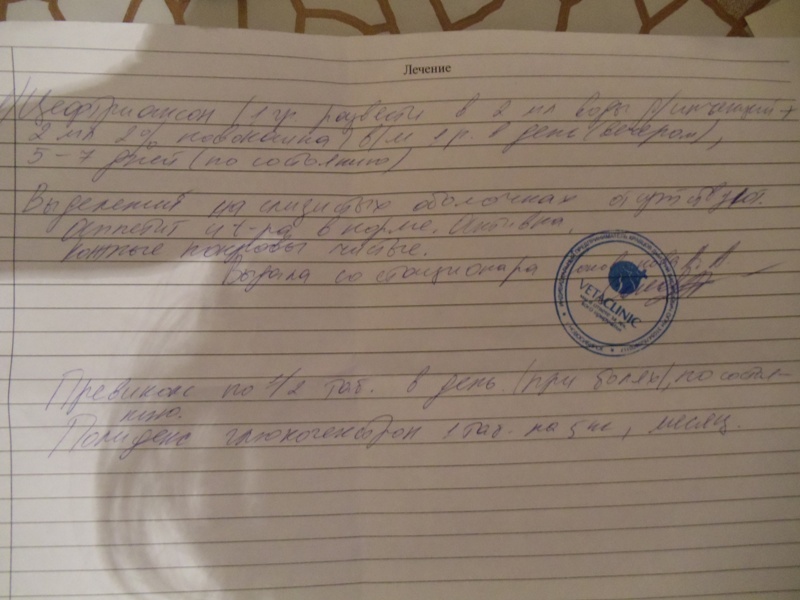 Лечение
1) Цефтриаксон (1 гр. развести в 2 мл воды д/инъекций +
2 мл 2% новокаина) в/м 1 р. в день (вечером),
5-7 дней (по состоянию)
Выделений на слизистых оболочках отсутствуют.
Аппетит и t-ра в норме. Активна,
кожные покровы чистые.
Выдала со стационара
VETACLINIC
Превикокс по 1/2 таб. в день (при болях), по состоя-
нию.
Полидекс глюкогекстрон 1 таб. на 5 кг, месяц.